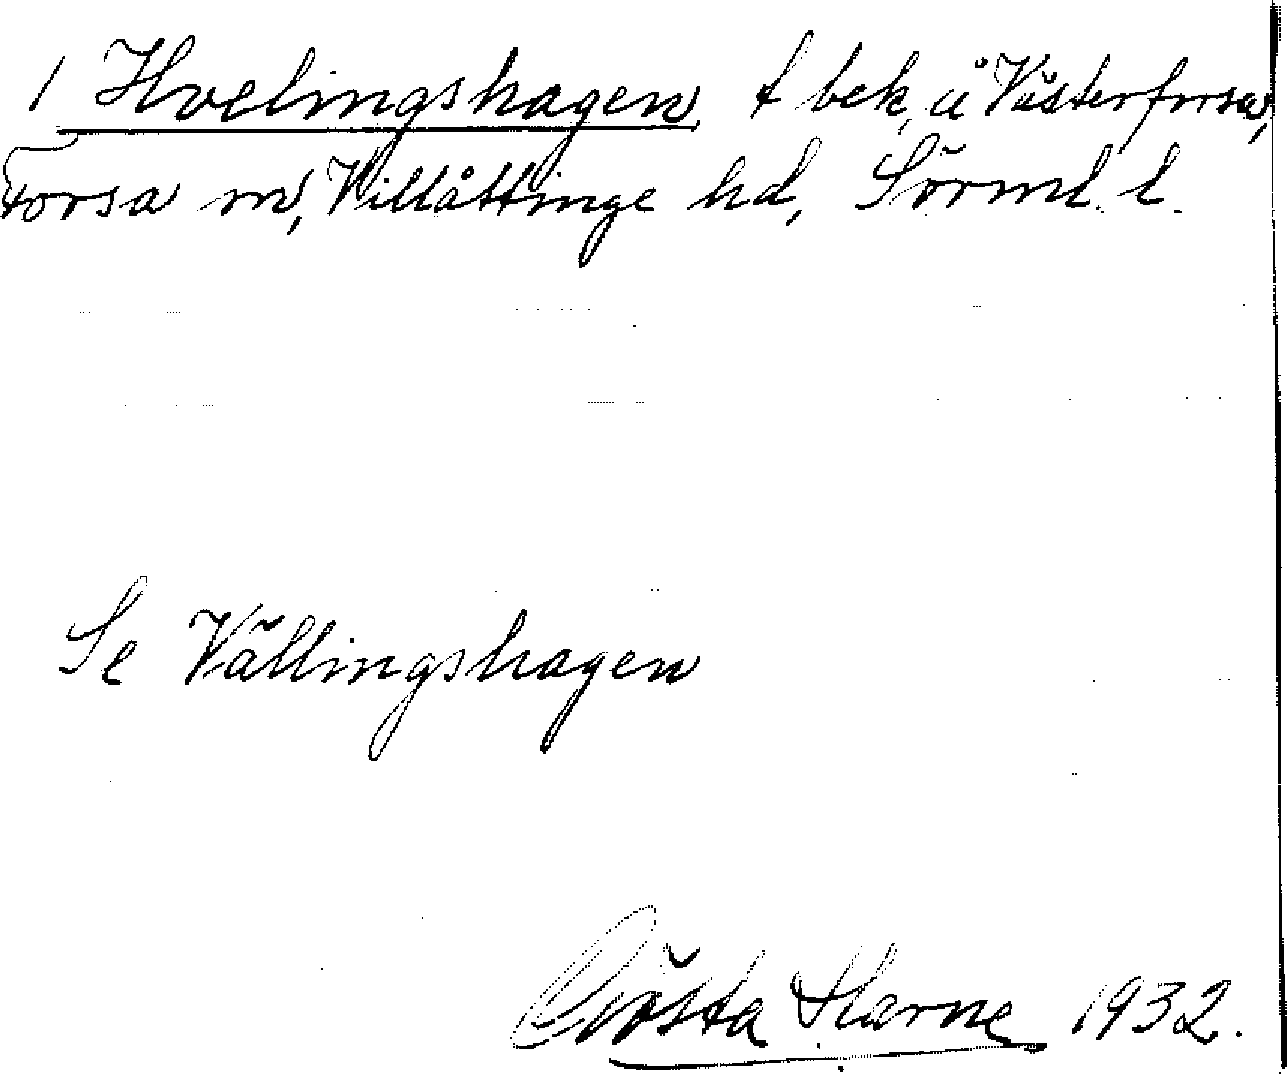 1 Hvelingshagen t bek, å Västerforsa,
Forsa sn, Villåttinge hd, Sörml. l.
Se Vällingshagen
Gösta Harne 1932.